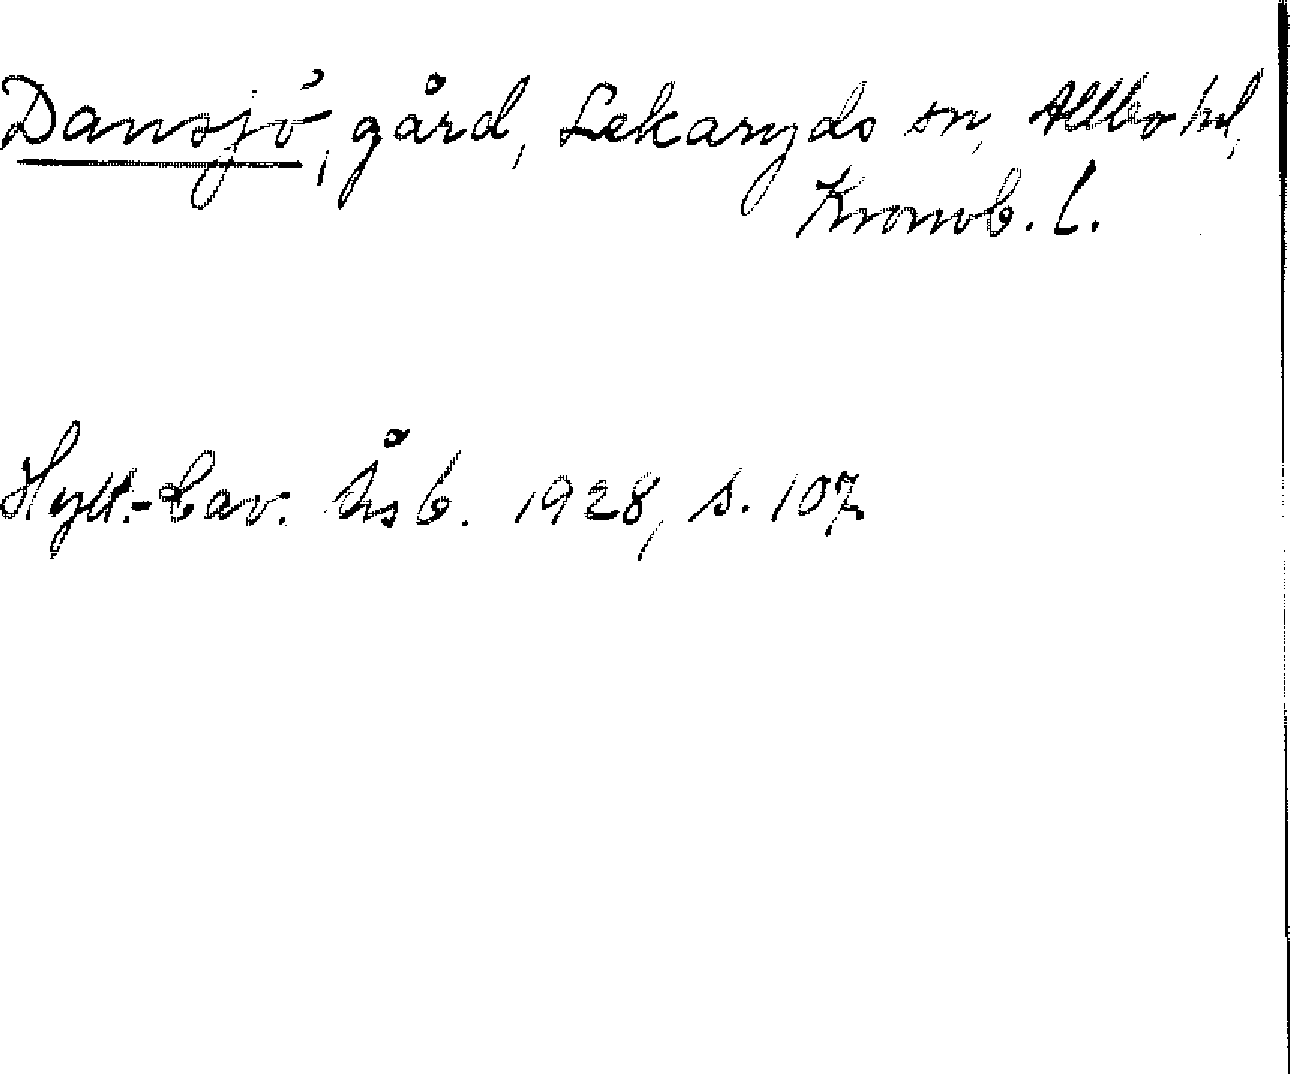 Dansjö, gård, Lekaryds sn, Allbo hd,
Kronob. l.
Hylt.-Cav. Årsb. 1928, s. 107.